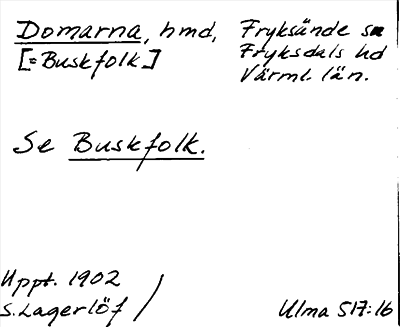 Domarna, hmd, Fryksände sn
[= Buskfolk] Fryksdals hd
Värml. län.
Se Buskfolk.
Uppt. 1902
S. Lagerlöf / Ulma 517:16